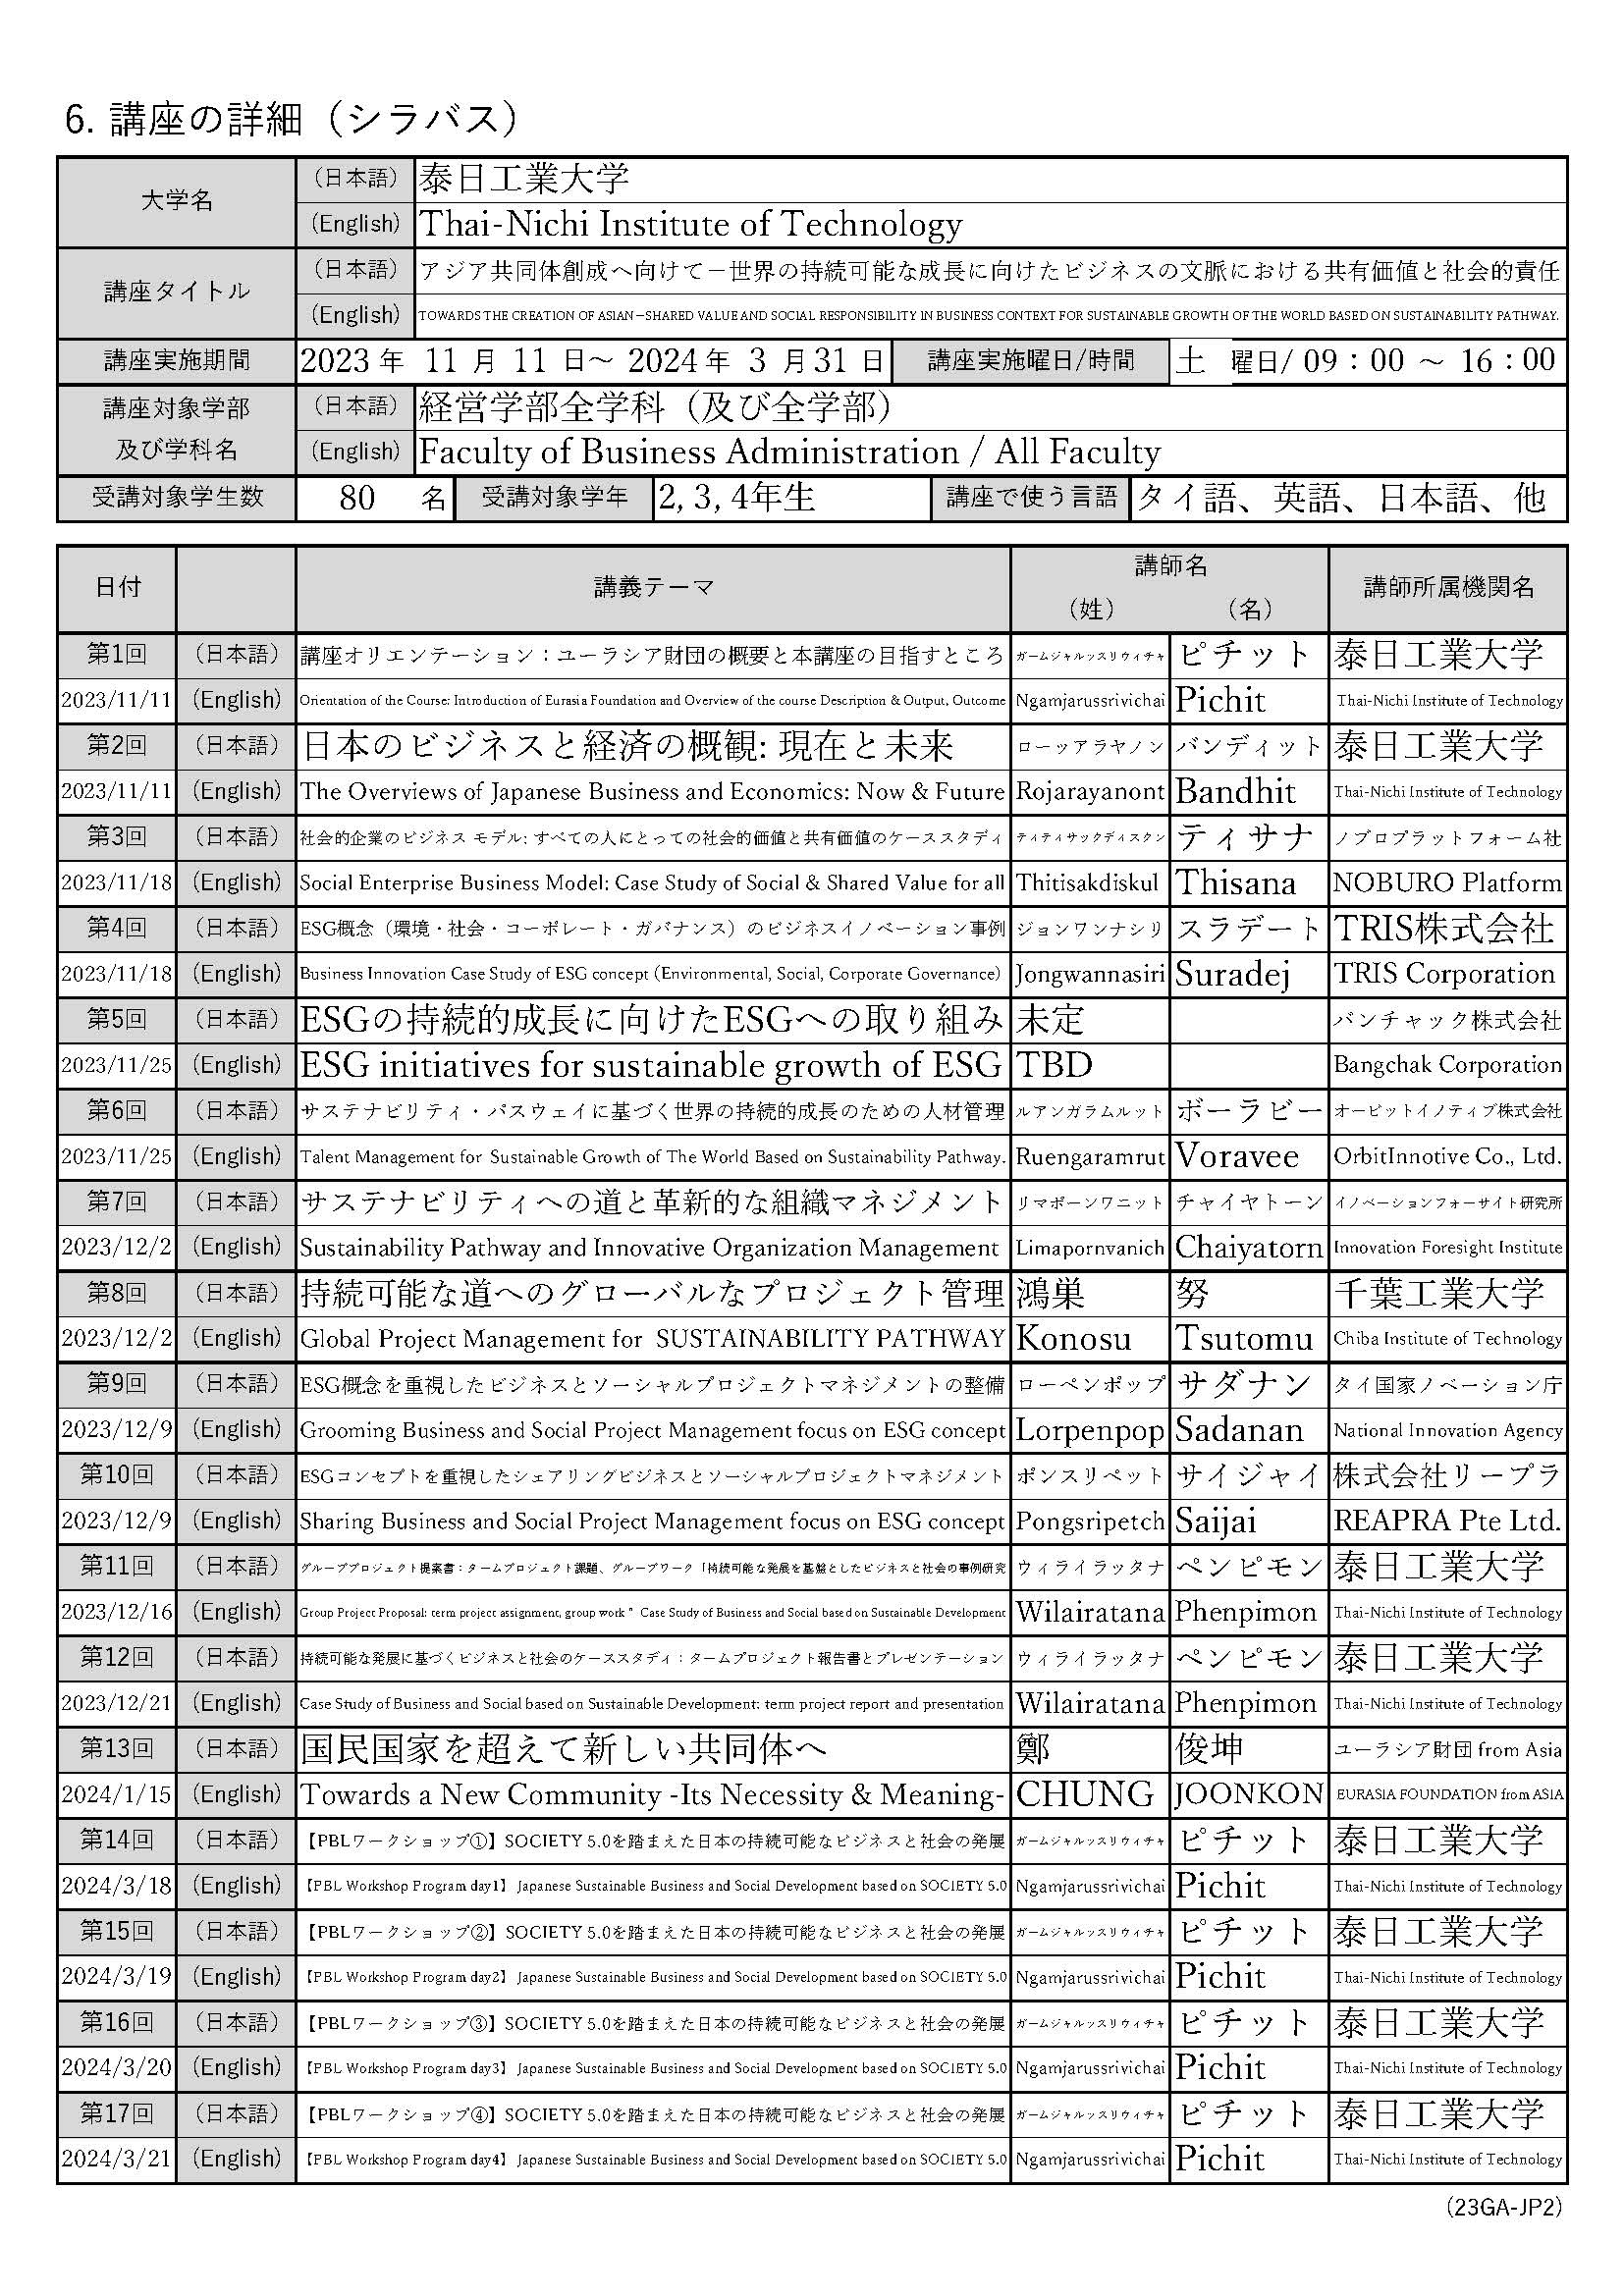 6. 講座の詳細（シラバス）
大学名 （日本語） 泰日工業大学
(English) Thai-Nichi Institute of Technology
講座タイトル （日本語） アジア共同体創成へ向けて－世界の持続可能な成長に向けたビジネスの文脈における共有価値と社会的責任
(English) TOWARDS THE CREATION OF ASIAN－SHARED VALUE AND SOCIAL RESPONSIBILITY IN BUSINESS CONTEXT FOR SUSTAINABLE GROWTH OF THE WORLD BASED ON SUSTAINABILITY PATHWAY.
講座実施期間 2023 年 11 月 11 日～ 2024 年 3 月 31 日 講座実施曜日/時間 土 曜日/ 09：00 ～ 16：00
講座対象学部 及び学科名 （日本語） 経営学部全学科（及び全学部）
(English) Faculty of Business Administration / All Faculty
受講対象学生数 80 名 受講対象学年 2, 3, 4年生 講座で使う言語 タイ語、英語、日本語、他
日付 講義テーマ 講師名 （姓） （名） 講師所属機関名
第1回 （日本語） 講座オリエンテーション：ユーラシア財団の概要と本講座の目指すところ ガームジャルッスリウィチャ ピチット 泰日工業大学
2023/11/11 (English) Orientation of the Course: Introduction of Eurasia Foundation and Overview of the course Description & Output, Outcome Ngamjarussrivichai Pichit Thai-Nichi Institute of Technology
第2回 （日本語） 日本のビジネスと経済の概観: 現在と未来 ローッアラヤノン バンディット 泰日工業大学
2023/11/11 (English) The Overviews of Japanese Business and Economics: Now & Future Rojarayanont Bandhit Thai-Nichi Institute of Technology
第3回 （日本語） 社会的企業のビジネス モデル: すべての人にとっての社会的価値と共有価値のケーススタディ ティティサックディスクン ティサナ ノブロプラットフォーム社
2023/11/18 (English) Social Enterprise Business Model: Case Study of Social & Shared Value for all Thitisakdiskul Thisana NOBURO Platform
第4回 （日本語） ESG概念（環境・社会・コーポレート・ガバナンス）のビジネスイノベーション事例 ジョンワンナシリ スラデート TRIS株式会社
2023/11/18 (English) Business Innovation Case Study of ESG concept (Environmental, Social, Corporate Governance) Jongwannasiri Suradej TRIS Corporation
第5回 （日本語） ESGの持続的成長に向けたESGへの取り組み 未定 バンチャック株式会社
2023/11/25 (English) ESG initiatives for sustainable growth of ESG TBD Bangchak Corporation
第6回 （日本語） サステナビリティ・パスウェイに基づく世界の持続的成長のための人材管理 ルアンガラムルット ボーラビー オービットイノティブ株式会社
2023/11/25 (English) Talent Management for Sustainable Growth of The World Based on Sustainability Pathway. Ruengaramrut Voravee OrbitInnotive Co., Ltd.
第7回 （日本語） サステナビリティへの道と革新的な組織マネジメント リマポーンワニット チャイヤトーン イノベーションフォーサイト研究所
2023/12/2 (English) Sustainability Pathway and Innovative Organization Management Limapornvanich Chaiyatorn Innovation Foresight Institute
第8回 （日本語） 持続可能な道へのグローバルなプロジェクト管理 鴻巣 努 千葉工業大学
2023/12/2 (English) Global Project Management for SUSTAINABILITY PATHWAY Konosu Tsutomu Chiba Institute of Technology
第9回 （日本語） ESG概念を重視したビジネスとソーシャルプロジェクトマネジメントの整備 ローペンポップ サダナン タイ国家ノベーション庁
2023/12/9 (English) Grooming Business and Social Project Management focus on ESG concept Lorpenpop Sadanan National Innovation Agency
第10回 （日本語） ESGコンセプトを重視したシェアリングビジネスとソーシャルプロジェクトマネジメント ポンスリペット サイジャイ 株式会社リープラ
2023/12/9 (English) Sharing Business and Social Project Management focus on ESG concept Pongsripetch Saijai REAPRA Pte Ltd.
第11回 （日本語） グループプロジェクト提案書：タームプロジェクト課題、グループワーク「持続可能な発展を基盤としたビジネスと社会の事例研究 ウィライラッタナ ペンピモン 泰日工業大学
2023/12/16 (English) Group Project Proposal: term project assignment, group work " Case Study of Business and Social based on Sustainable Development Wilairatana Phenpimon Thai-Nichi Institute of Technology
第12回 （日本語） 持続可能な発展に基づくビジネスと社会のケーススタディ：タームプロジェクト報告書とプレゼンテーション ウィライラッタナ ペンピモン 泰日工業大学
2023/12/21 (English) Case Study of Business and Social based on Sustainable Development: term project report and presentation Wilairatana Phenpimon Thai-Nichi Institute of Technology
第13回 （日本語） 国民国家を超えて新しい共同体へ 鄭 俊坤 ユーラシア財団 from Asia
2024/1/15 (English) Towards a New Community -Its Necessity & Meaning- CHUNG JOONKON EURASIA FOUNDATION from ASIA
第14回 （日本語） 【PBLワークショップ①】SOCIETY 5.0を踏まえた日本の持続可能なビジネスと社会の発展 ガームジャルッスリウィチャ ピチット 泰日工業大学
2024/3/18 (English) 【PBL Workshop Program day1】 Japanese Sustainable Business and Social Development based on SOCIETY 5.0 Ngamjarussrivichai Pichit Thai-Nichi Institute of Technology
第15回 （日本語） 【PBLワークショップ②】SOCIETY 5.0を踏まえた日本の持続可能なビジネスと社会の発展 ガームジャルッスリウィチャ ピチット 泰日工業大学
2024/3/19 (English) 【PBL Workshop Program day2】 Japanese Sustainable Business and Social Development based on SOCIETY 5.0 Ngamjarussrivichai Pichit Thai-Nichi Institute of Technology
第16回 （日本語） 【PBLワークショップ③】SOCIETY 5.0を踏まえた日本の持続可能なビジネスと社会の発展 ガームジャルッスリウィチャ ピチット 泰日工業大学
2024/3/20 (English) 【PBL Workshop Program day3】 Japanese Sustainable Business and Social Development based on SOCIETY 5.0 Ngamjarussrivichai Pichit Thai-Nichi Institute of Technology
第17回 （日本語） 【PBLワークショップ④】SOCIETY 5.0を踏まえた日本の持続可能なビジネスと社会の発展 ガームジャルッスリウィチャ ピチット 泰日工業大学
2024/3/21 (English) 【PBL Workshop Program day4】 Japanese Sustainable Business and Social Development based on SOCIETY 5.0 Ngamjarussrivichai Pichit Thai-Nichi Institute of Technology
（23GA-JP2）